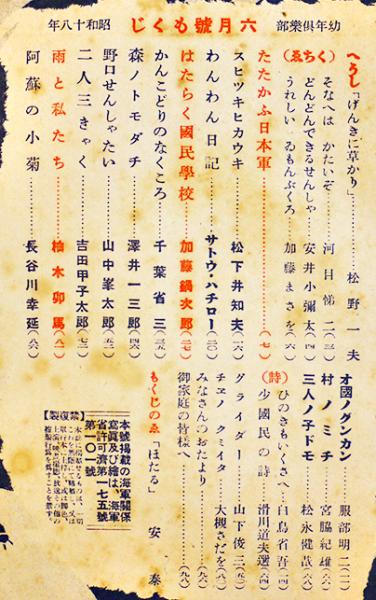 幼年倶樂部 六月號もくじ 昭和十八年
へうし「げんきに草かり」………松野一夫
(ゑちく)
そなへは かたいぞ………河目悌二(二)
どんどんできるせんしゃ……安井小彌太(四)
うれしい ゐもんぶくろ……加藤まさを(六)
たたかふ日本軍………(七)
スヒツキヒカウキ………松下井知夫(一六)
わんわん日記………サトウ・ハチロー(二〇)
はたらく國民學校………加藤鍋次郎(二七)
かんこどりのなくころ………千葉省三(三五)
森ノトモダチ………澤井一三郎(四六)
野口せんしゃたい………山中峯太郎(五二)
二人三きゃく………吉田甲子太郎(七三)
雨と私たち………柚木卯馬(八二)
阿蘇の小菊………長谷川幸延(八六)
オ國ノグンカン………服部明二(一二)
村ノミチ………宮脇紀雄(六二)
三人ノ子ドモ………松永健哉(六八)
(詩)
ひのきもいくさへ……白鳥省吾(四四)
少國民の詩………滑川道夫選(六四)
グライダー………山下俊三(五〇)
チエノクミイタ………大槻さだを(八一)
みなさんのおたより………(九八)
御家庭の皆樣へ………(九九)
もくじのゑ「ほたる」 安泰
本號掲載の海軍關係寫眞及び繪は、海軍省許可濟第一七五號 第一〇一號
【禁複製】